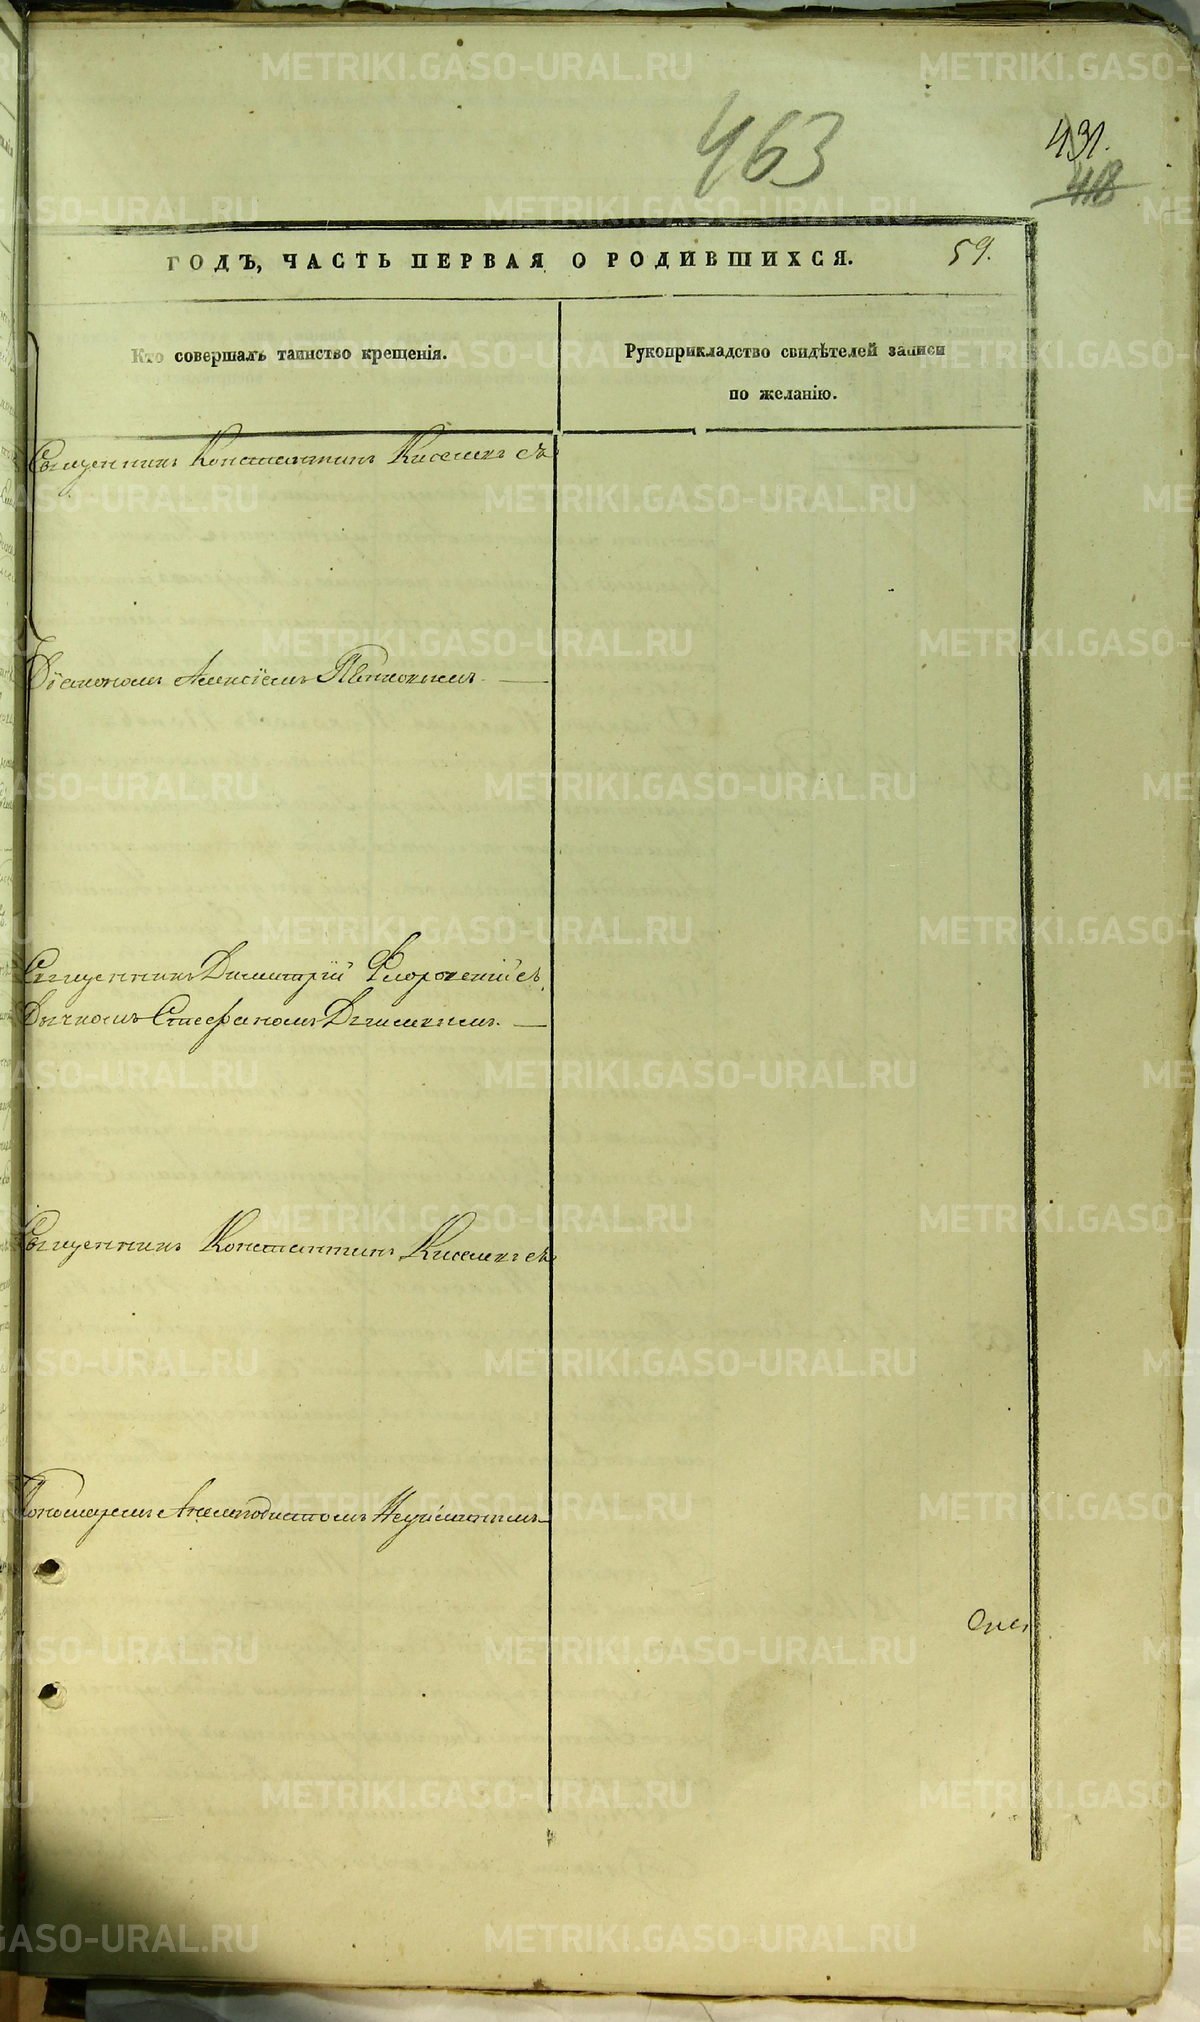 463
431.
418
ГОДЪ, ЧАСТЬ ПЕРВАЯ О РОДИВШИХСЯ.
59.
Кто совершалъ таинство крещенія.
Рукоприкладство свидѣтелей записи
по желанію.
Священникъ Константинъ Киселевъ съ
Діакономъ Алексіемъ
Священникъ Димитрій Флоровскій съ
Дьячкомъ Стефаномъ
Священникъ Константинъ Киселевъ съ
Пономаремъ Анемподистомъ Неуйминымъ
METRIKI.GASO-URAL.RU